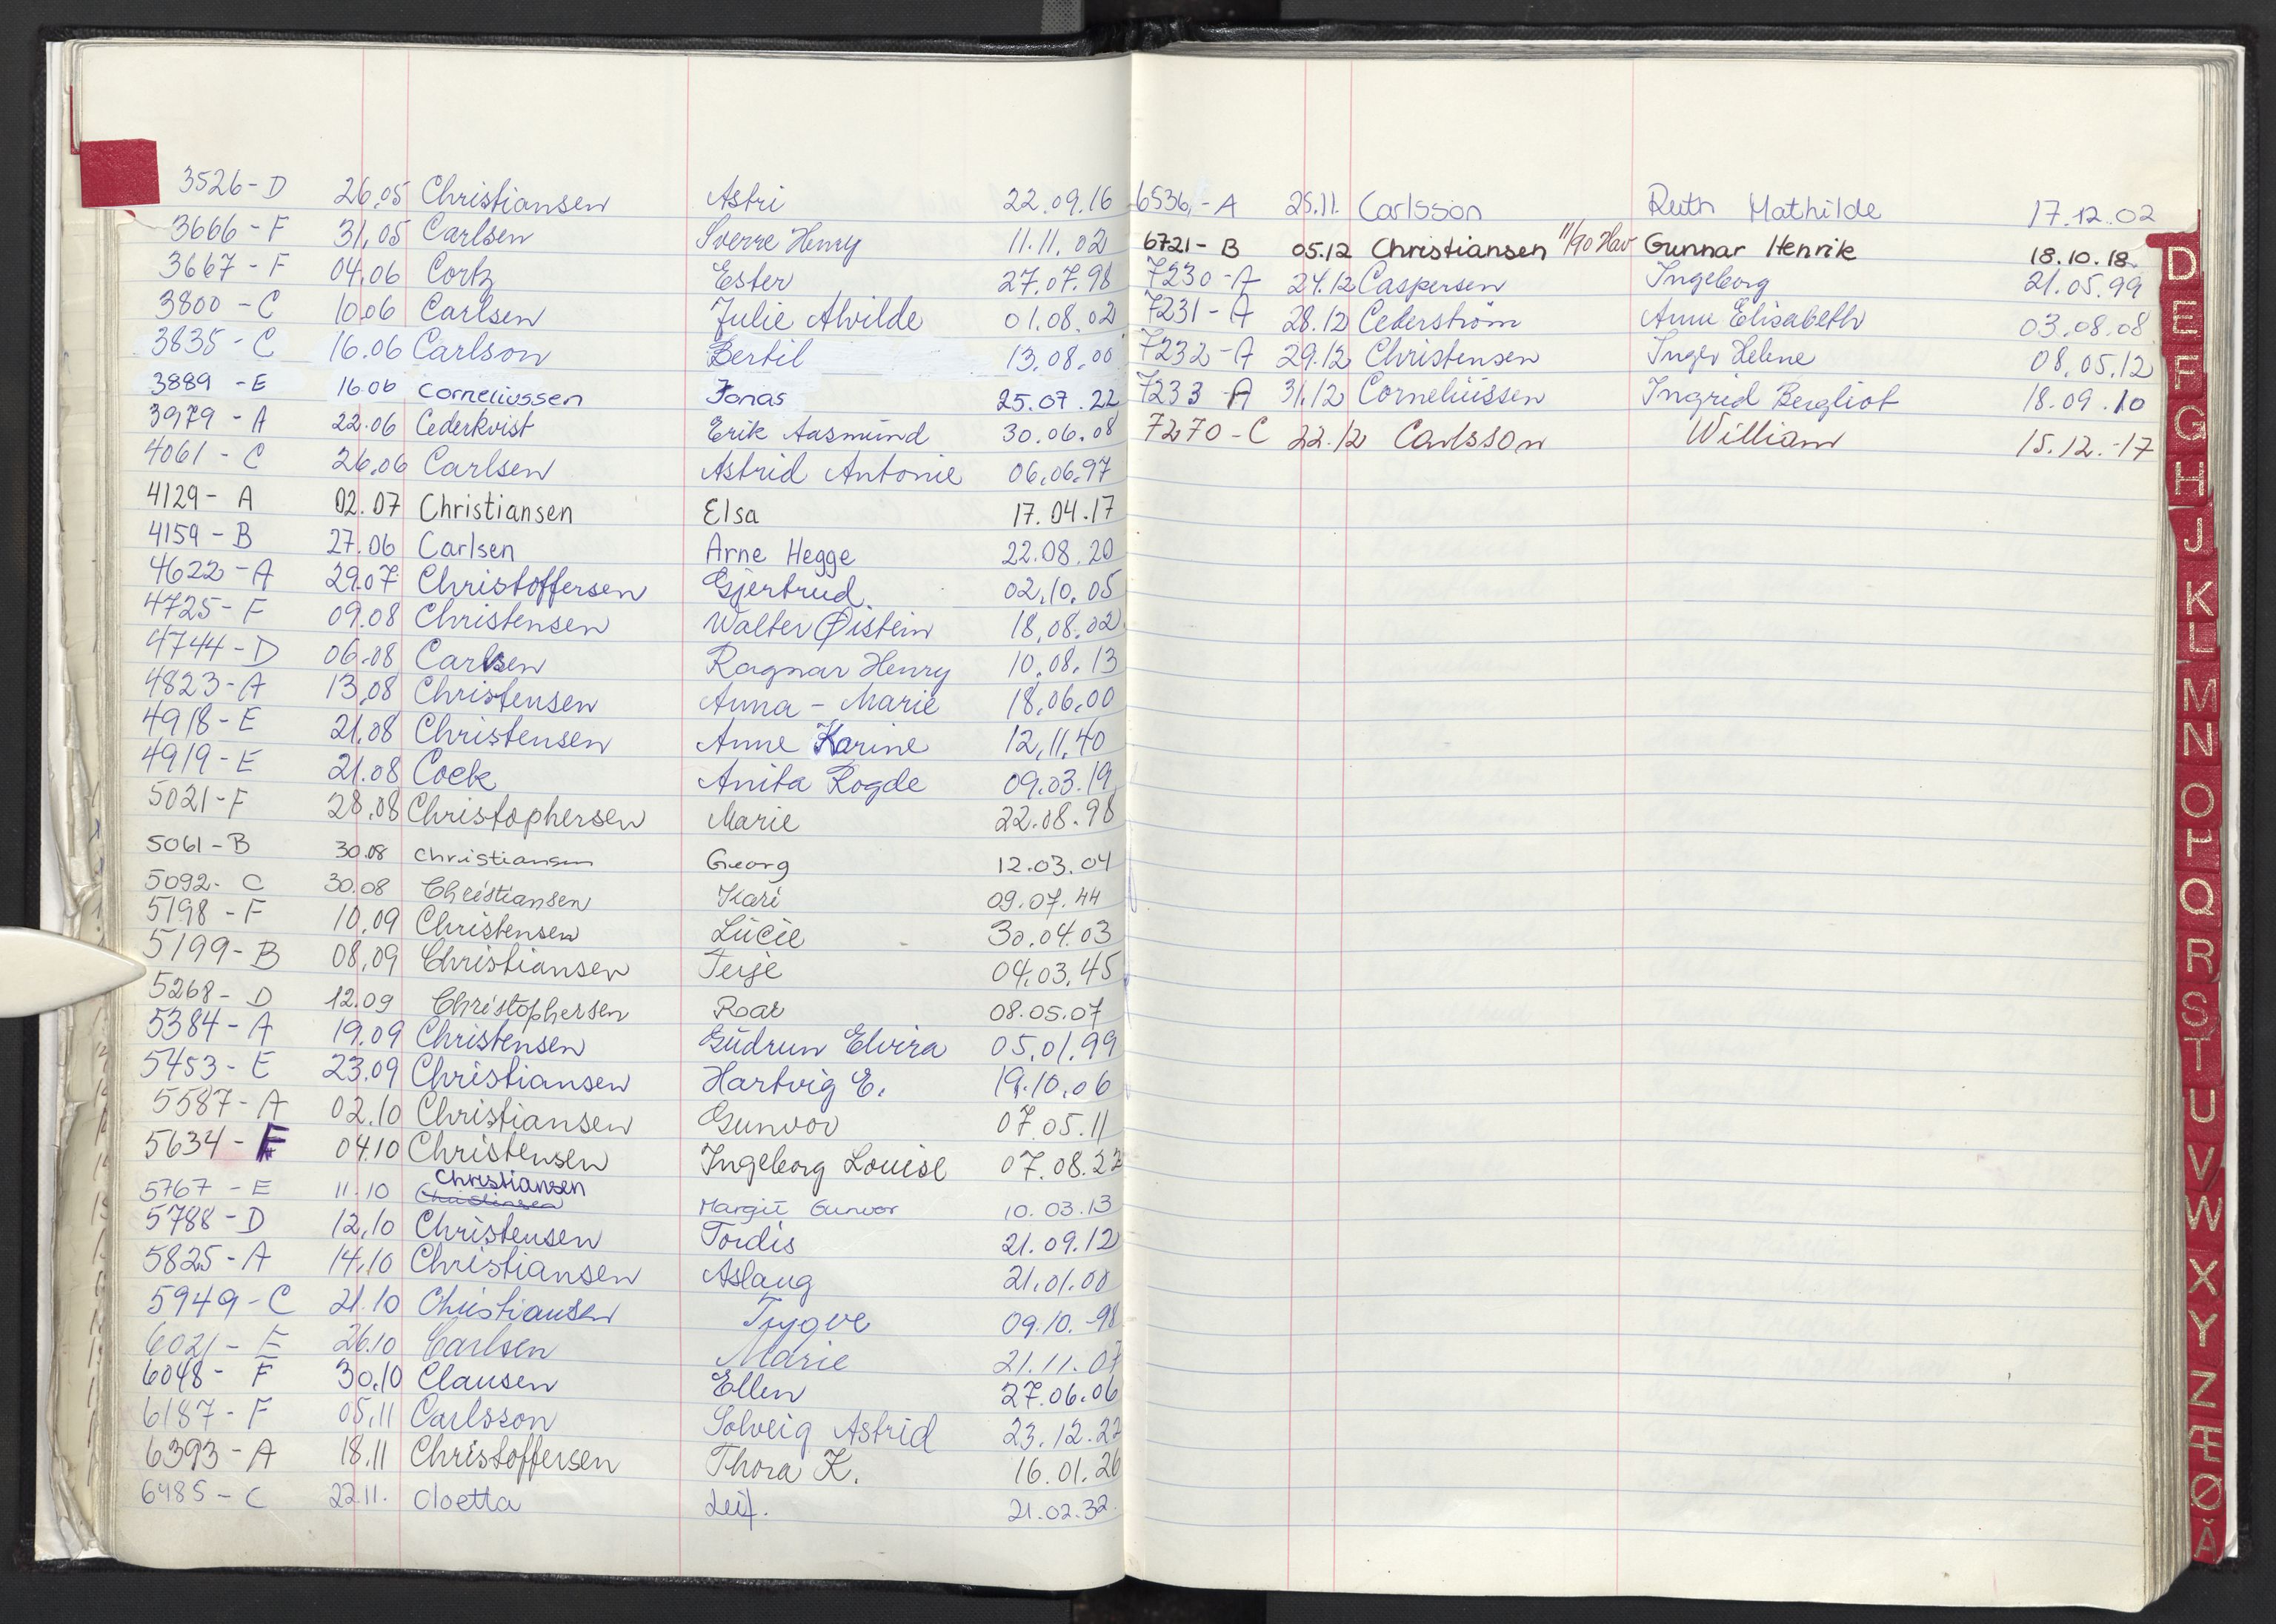 3526-D 26.05 Christiansen Astri 22.09.16
3666-F 31.05 Carlsen Sverre Henry 11.11.02
3667-F 04.06 Cortz Ester 27.07.98
3800-C 10.06 Carlsen Julie Alvilde 01.08.02
3835-C 16.06 Carlson Bertil 13.08.00
3889-E 16.06 Corneliussen Jonas 25.07.22
3979-A 22.06 Cederkvist Erik Aasmund 30.06.08
4061-C 26.06 Carlsen Astrid Antonie 06.06.97
4129-A 02.07 Christiansen Elsa 17.04.17
4159-B 27.06 Carlsen Arne Hegge 22.08.20
4622-A 29.07 Christoffersen Gjertrud. 02.10.05
4725-F 09.08 Christensen Walter Øistein 18.08.02
4744-D 06.08 Carlsen Ragnar Henry 10.08.13
4823-A 13.08 Christensen Anna-Marie 18.06.00
4918-E 21.08 Christensen Anne Karine 12.11.40
4919-E 21.08 Cock Anita Rogde 09.03.19
5021-F 28.08 Christophersen Marie 22.08.98
5061-B 30.08 Christiansen Georg 12.03.04
5092-C 30.08 Christiansen Kari 09.07.44
5198-F 10.09 Christensen Lucie 30.04.03
5199-B 08.09 Christiansen Terje 04.03.45
5268-D 12.09 Christophersen Roar 08.05.07
5384-A 19.09 Christensen Gudrun Elvira 05.01.99
5453-E 23.09 Christiansen Hartvig E. 19.10.06
5587-A 02.10 Christiansen Gunvor 07.05.11
5634-F 04.10 Christensen Ingeborg Louise 07.08.22
5767-E 11.10 Christiansen Margit Gunvor 10.03.13
5788-D 12.10 Christensen Tordis 21.09.12
5825-A 14.10 Christiansen Aslaug 21.01.00
5949-C 21.10 Christiansen Trygve 09.10.-98
6021-E 26.10 Carlsen Marie 21.11.07
6048-F 30.10 Clausen Ellen 27.06.06
6187-F 05.11 Carlsson Solveig Astrid 23.12.22
6393-A 18.11 Christoffersen Thora K. 16.01.26
6485-C 22.11. Cloetta Leif. 21.02.32.
6536-A 25.11. Carlsson Ruth Mathilde 17.12.02
6721-B 05.12 Christiansen 11/90 Hav Gunnar Henrik 18.10.18.
7230-A 24.12 Caspersen Ingeborg 21.05.99
7231-A 28.12 Cederstrøm Anne Elisabeth 03.08.08
7232-A 29.12 Christensen Inger Helene 08.05.12
7233-A 31.12 Corneliussen Ingrid Bergliot 18.09.10
7270-C 22.12 Carlsson William 15.12.-17
D
E
F
G
H
J
K
L
M
N
O
P
Q
R
S
T
U
V
W
X
Y
Z
Æ
Ø
Å